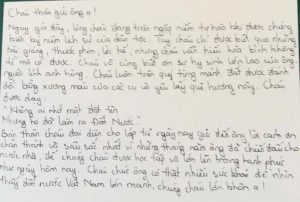 Cháu thân gửi ông ạ!
Ngay giờ đây, lòng cháu đang trào ngập niềm tự hào khi được chứng
kiến lịch sử của dân tộc. Tuy cháu chỉ được biết qua những
bài giảng, thước phim, lời kể, nhưng cháu vẫn hiểu hoà bình không
dễ mà có được. Cháu vô cùng biết ơn sự hy sinh lớn lao của ông
người lính anh hùng. Cháu luôn trân quý từng mảnh đất được đánh
đổi bằng xương máu của các cụ và yêu lấy quê hương này. Cháu
được dạy:
"Không ai nhớ mặt đặt tên
Nhưng họ đã làm ra Đất Nước"
Bản thân cháu đại diện cho lớp trẻ ngày nay gửi đến ông lời cảm ơn
chân thành và sâu sắc nhất vì những tháng năm ông đã chiến đấu cho
nước nhà, để chúng cháu được học tập và lớn lên trong hạnh phúc
như ngày hôm nay. Cháu chúc ông có thật nhiều sức khoẻ để nhìn
thấy đất nước Việt Nam lớn mạnh, chúng cháu lớn khôn ạ!